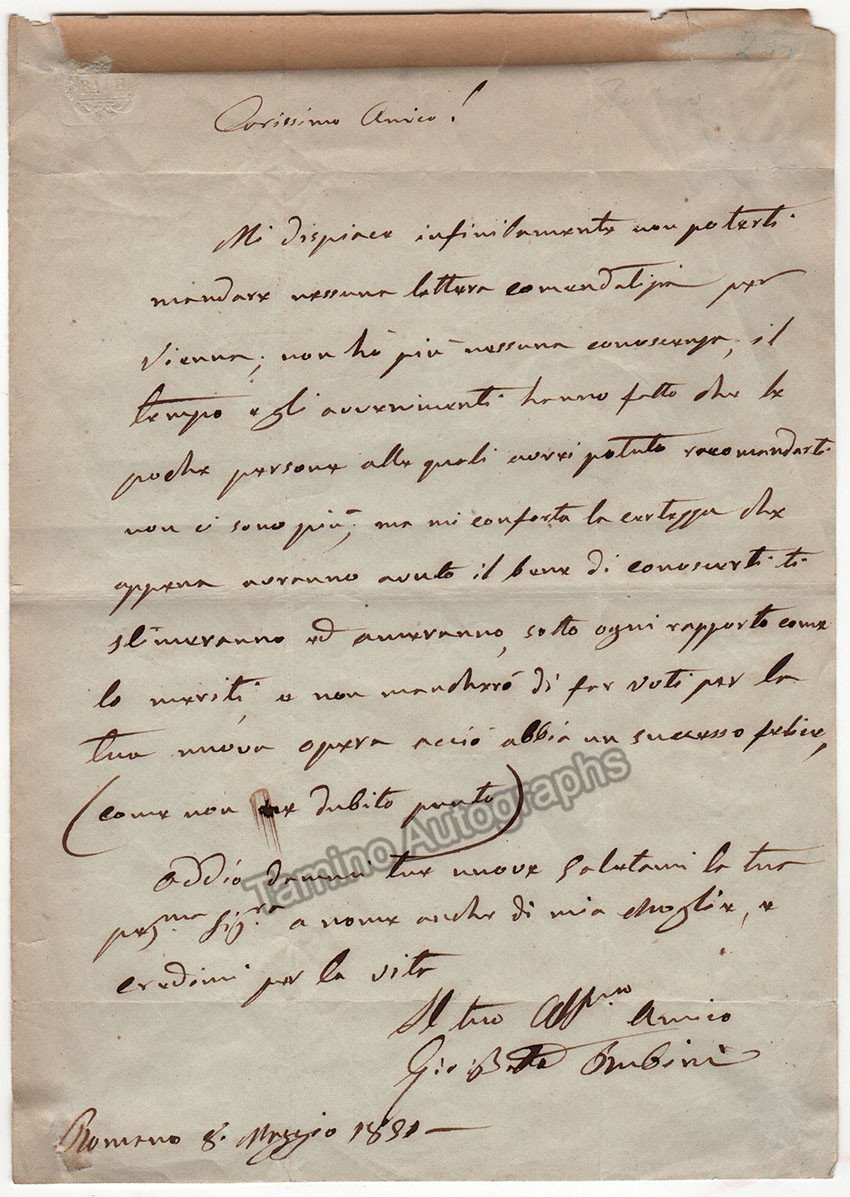 Carissimo Amico!
Mi dispiace infinitamente non poterti
mandare nessuna lettera comendatizia per
Vienna; non hò più nessuna conoscenza, il
tempo e gli avvenimenti hanno fatto che le
poche persone alle quali avrei potuto racomandarti
non ci sono più; ma mi conforta la certezza che
appena avranno avuto il bene di conoscerti ti
stimeranno ed ameranno, sotto ogni rapporto come
lo meriti, e non mancherò di far voti per la
tua nuova opera acciò abbia un successo felice,
(come non ne dubito punto)
Addio dammi tue nuove salutami la tua
preg.ma Sig.ra a nome anche di mia Moglie, e
credimi per la vita
Il tuo Aff.mo Amico
Gio Batta Rubini
Romano 8. Maggio 1851
Tamino Autographs